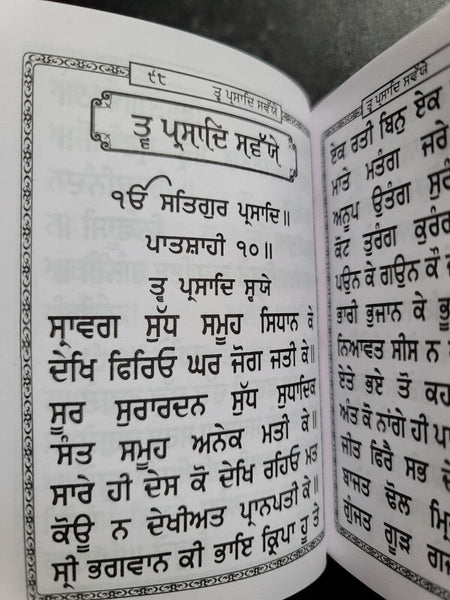 ੯੮
ਤ੍ਵ ਪ੍ਰਸਾਦਿ ਸਵੱਯੇ
ਤ੍ਵ ਪ੍ਰਸਾਦਿ ਸਵੱਯੇ
ੴ ਸਤਿਗੁਰ ਪ੍ਰਸਾਦਿ॥
ਪਾਤਸ਼ਾਹੀ ੧੦॥
ਤ੍ਵ ਪ੍ਰਸਾਦਿ ਸ੍ਵਯੇ
ਸ੍ਰਾਵਗ ਸੁੱਧ ਸਮੂਹ ਸਿਧਾਨ ਕੇ
ਦੇਖਿ ਫਿਰਿਓ ਘਰ ਜੋਗ ਜਤੀ ਕੇ॥
ਸੂਰ ਸੁਰਾਰਦਨ ਸੁੱਧ ਸੁਧਾਦਿਕ
ਸੰਤ ਸਮੂਹ ਅਨੇਕ ਮਤੀ ਕੇ॥
ਸਾਰੇ ਹੀ ਦੇਸ ਕੋ ਦੇਖਿ ਰਹਿਓ ਮਤ
ਕੋਊ ਨ ਦੇਖੀਅਤ ਪ੍ਰਾਨਪਤੀ ਕੇ॥
ਸ੍ਰੀ ਭਗਵਾਨ ਕੀ ਭਾਇ ਕ੍ਰਿਪਾ ਹੂ ਤੇ
ਤ੍ਵ ਪ੍ਰਸਾਦਿ ਸਵੱਯੇ
ਏਕ ਰਤੀ ਬਿਨੁ ਏਕ
ਮਾਤੇ ਮਤੰਗ ਜਰੇ
ਅਨੂਪ ਉਤੰਗ
ਕੋਟ ਤੁਰੰਗ
ਪਉਨ ਕੇ ਗਉਨ ਕੌ
ਭਾਰੀ ਭੁਜਾਨ ਕੇ
ਨਿਆਵਤ ਸੀਸ ਨ
ਏਤੇ ਭਏ ਤੋ
ਅੰਤ ਕੋ ਨਾਂਗੇ ਹੀ
ਜੀਤ ਫਿਰੈ ਸਭ
ਬਾਜਤ ਢੋਲ
ਗੁੰਜਤ ਗੂੜ